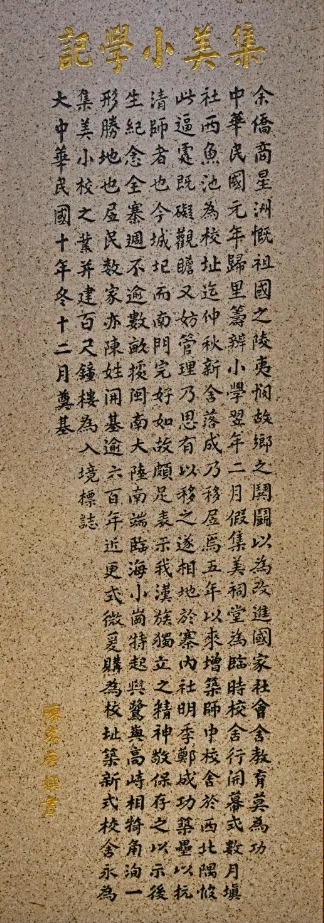 集美小學記
余僑商星洲慨祖國之陵夷憫故鄉之鬩鬪以為改進國家社會舍教育莫為功
中華民國元年歸里籌辦小學翌年二月假集美祠堂為臨時校舍行開幕式數月填
社西魚池為校址迄仲秋新舍落成乃移居焉五年以來增築師中校舍於西北隅彼
此逼處既礙觀瞻又妨管理乃思有以移之遂相地於寨內社明季鄭成功築壘以抗
清師者也今城圮而南門完好如故頗足表示我漢族獨立之精神敬保存之以示後
生紀念全寨週不逾數畝據閩南大陸南端臨海小崗特起與鷺與高崎相犄角洵一
形勝地也居民數家亦陳姓開基逾六百年近更式微爰購為校址築新式校舍永為
集美小校之業并建百尺鐘樓為入境標誌
大中華民國十年冬十二月奠基
陳嘉庚撰書